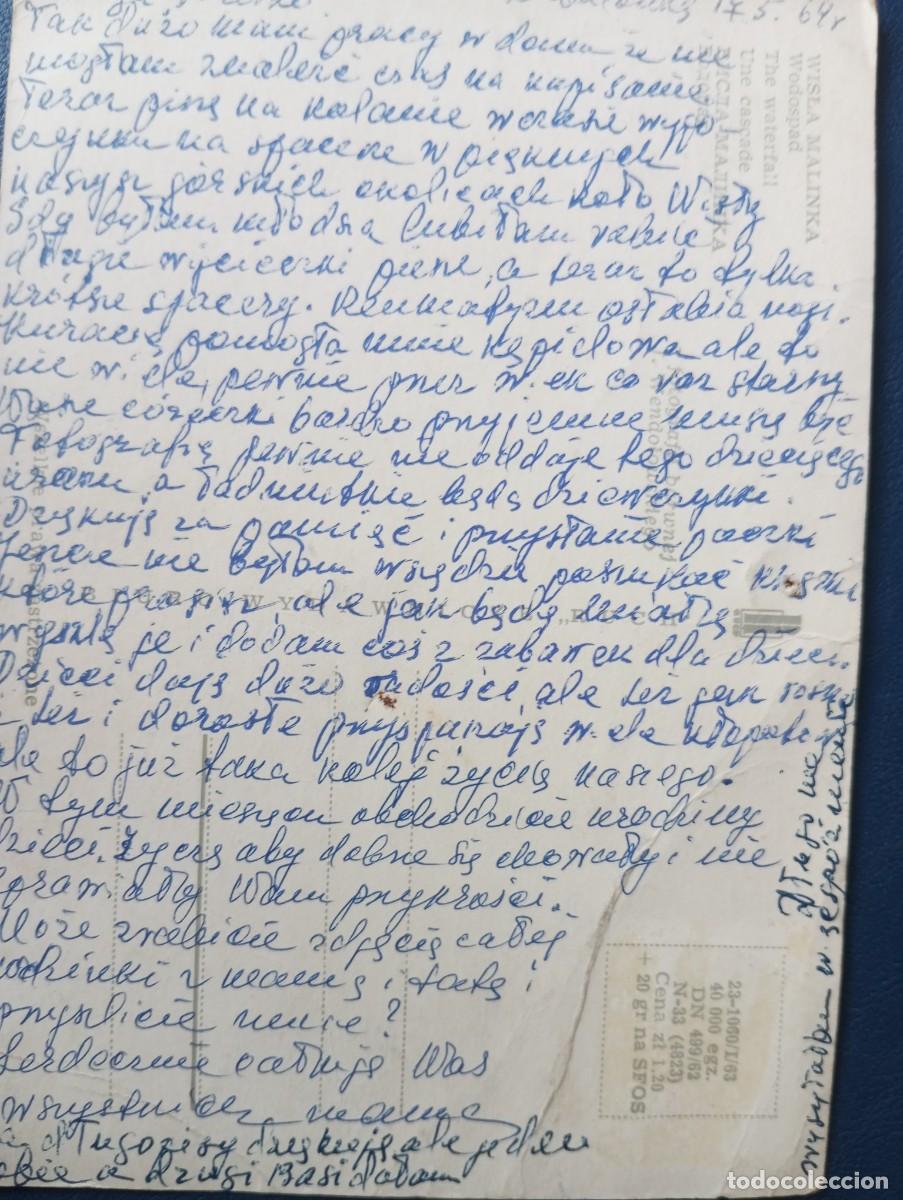 17.5. 64r
Tak dużo mam pracy w domu że nie
mogłam znaleźć czas na napisanie
teraz piszę na kolanie w czasie wypo
czynku na spacerze w pięknych
naszych górskich okolicach koło Wisły
Gdy byłam młodsza lubiłam robić
długie wycieczki piesze, a teraz to tylko
krótsze spacery. Reumatyzm osłabia nogi.
Kuracja pomogła mnie kąpielowa ale to
nie wiele, pewnie przez wiek co raz starszy
Wasze córeczki bardzo przyjemne muszą być
Fotografia pewnie nie oddaje tego dziecięcego
uroku, a ładniutkie będą dziewczynki.
Dziękuję za pamięć i przysłanie paczki
Jeszcze nie byłam wszędzie poszukać książki
które prosisz, ale jak będę miała
wyślę je i dodam coś z zabawek dla dzieci.
Dzieci dają dużo radości, ale też jak
też i dorosłe przysparzają wiele kłopotu
ale to już taka kolej życia naszego.
W tym miesiącu obchodzicie urodziny
dzieci. Życzę aby dobrze się chowały i nie
sprawiały Wam przykrości.
Może zrobicie zdjęcie całej
rodzinki z mamą i tatą i
przyślicie mnie?
Serdecznie całuję Was
wszystkich mama
długopisy dziękuję ale jeden
sobie a drugi Basi dałam
Długo nie
wysyłałam
WISŁA MALINKA
Wodospad
The waterfall
Une cascade
ВИСЛА МАЛИНКА
Wszelkie prawa zastrzeżone
23-1060/I/63
40 000 egz.
DN 499/62
N-33 (4823)
Cena zł 1.20
+ 20 gr na SFOS
todocoleccion.net